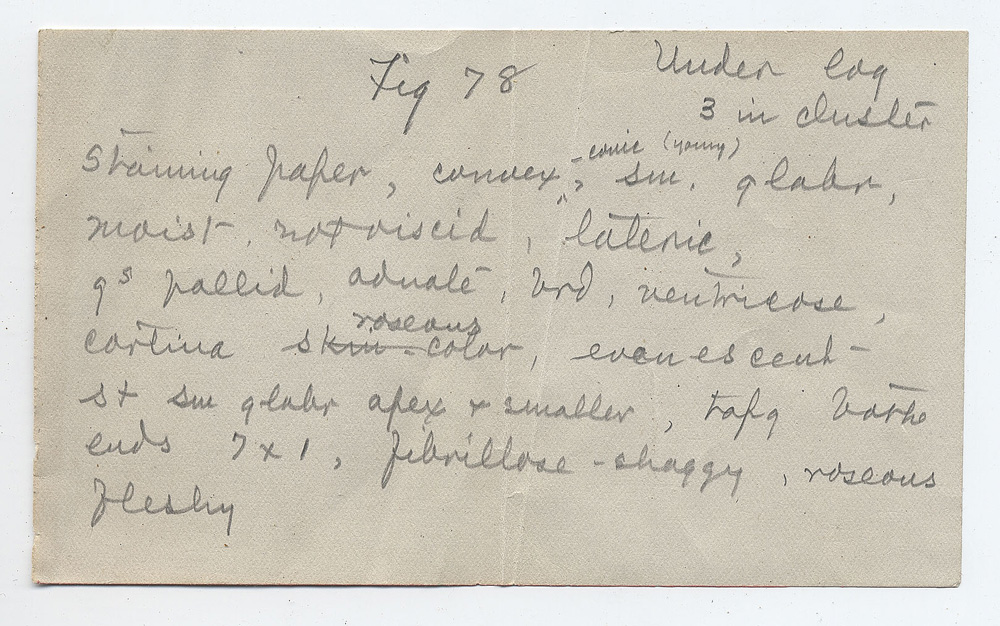 Fig 78
Under log
3 in cluster
-conic (young)
Staining paper, convex, sm. glabr,
moist, not viscid, lateric,
gs pallid, adnate, brd, ventricose,
roseous
cortina skin-color, evanescent-
st sm glabr apex & smaller, tapg bothe
ends 7x1, fibrillose-shaggy, roseous
fleshy